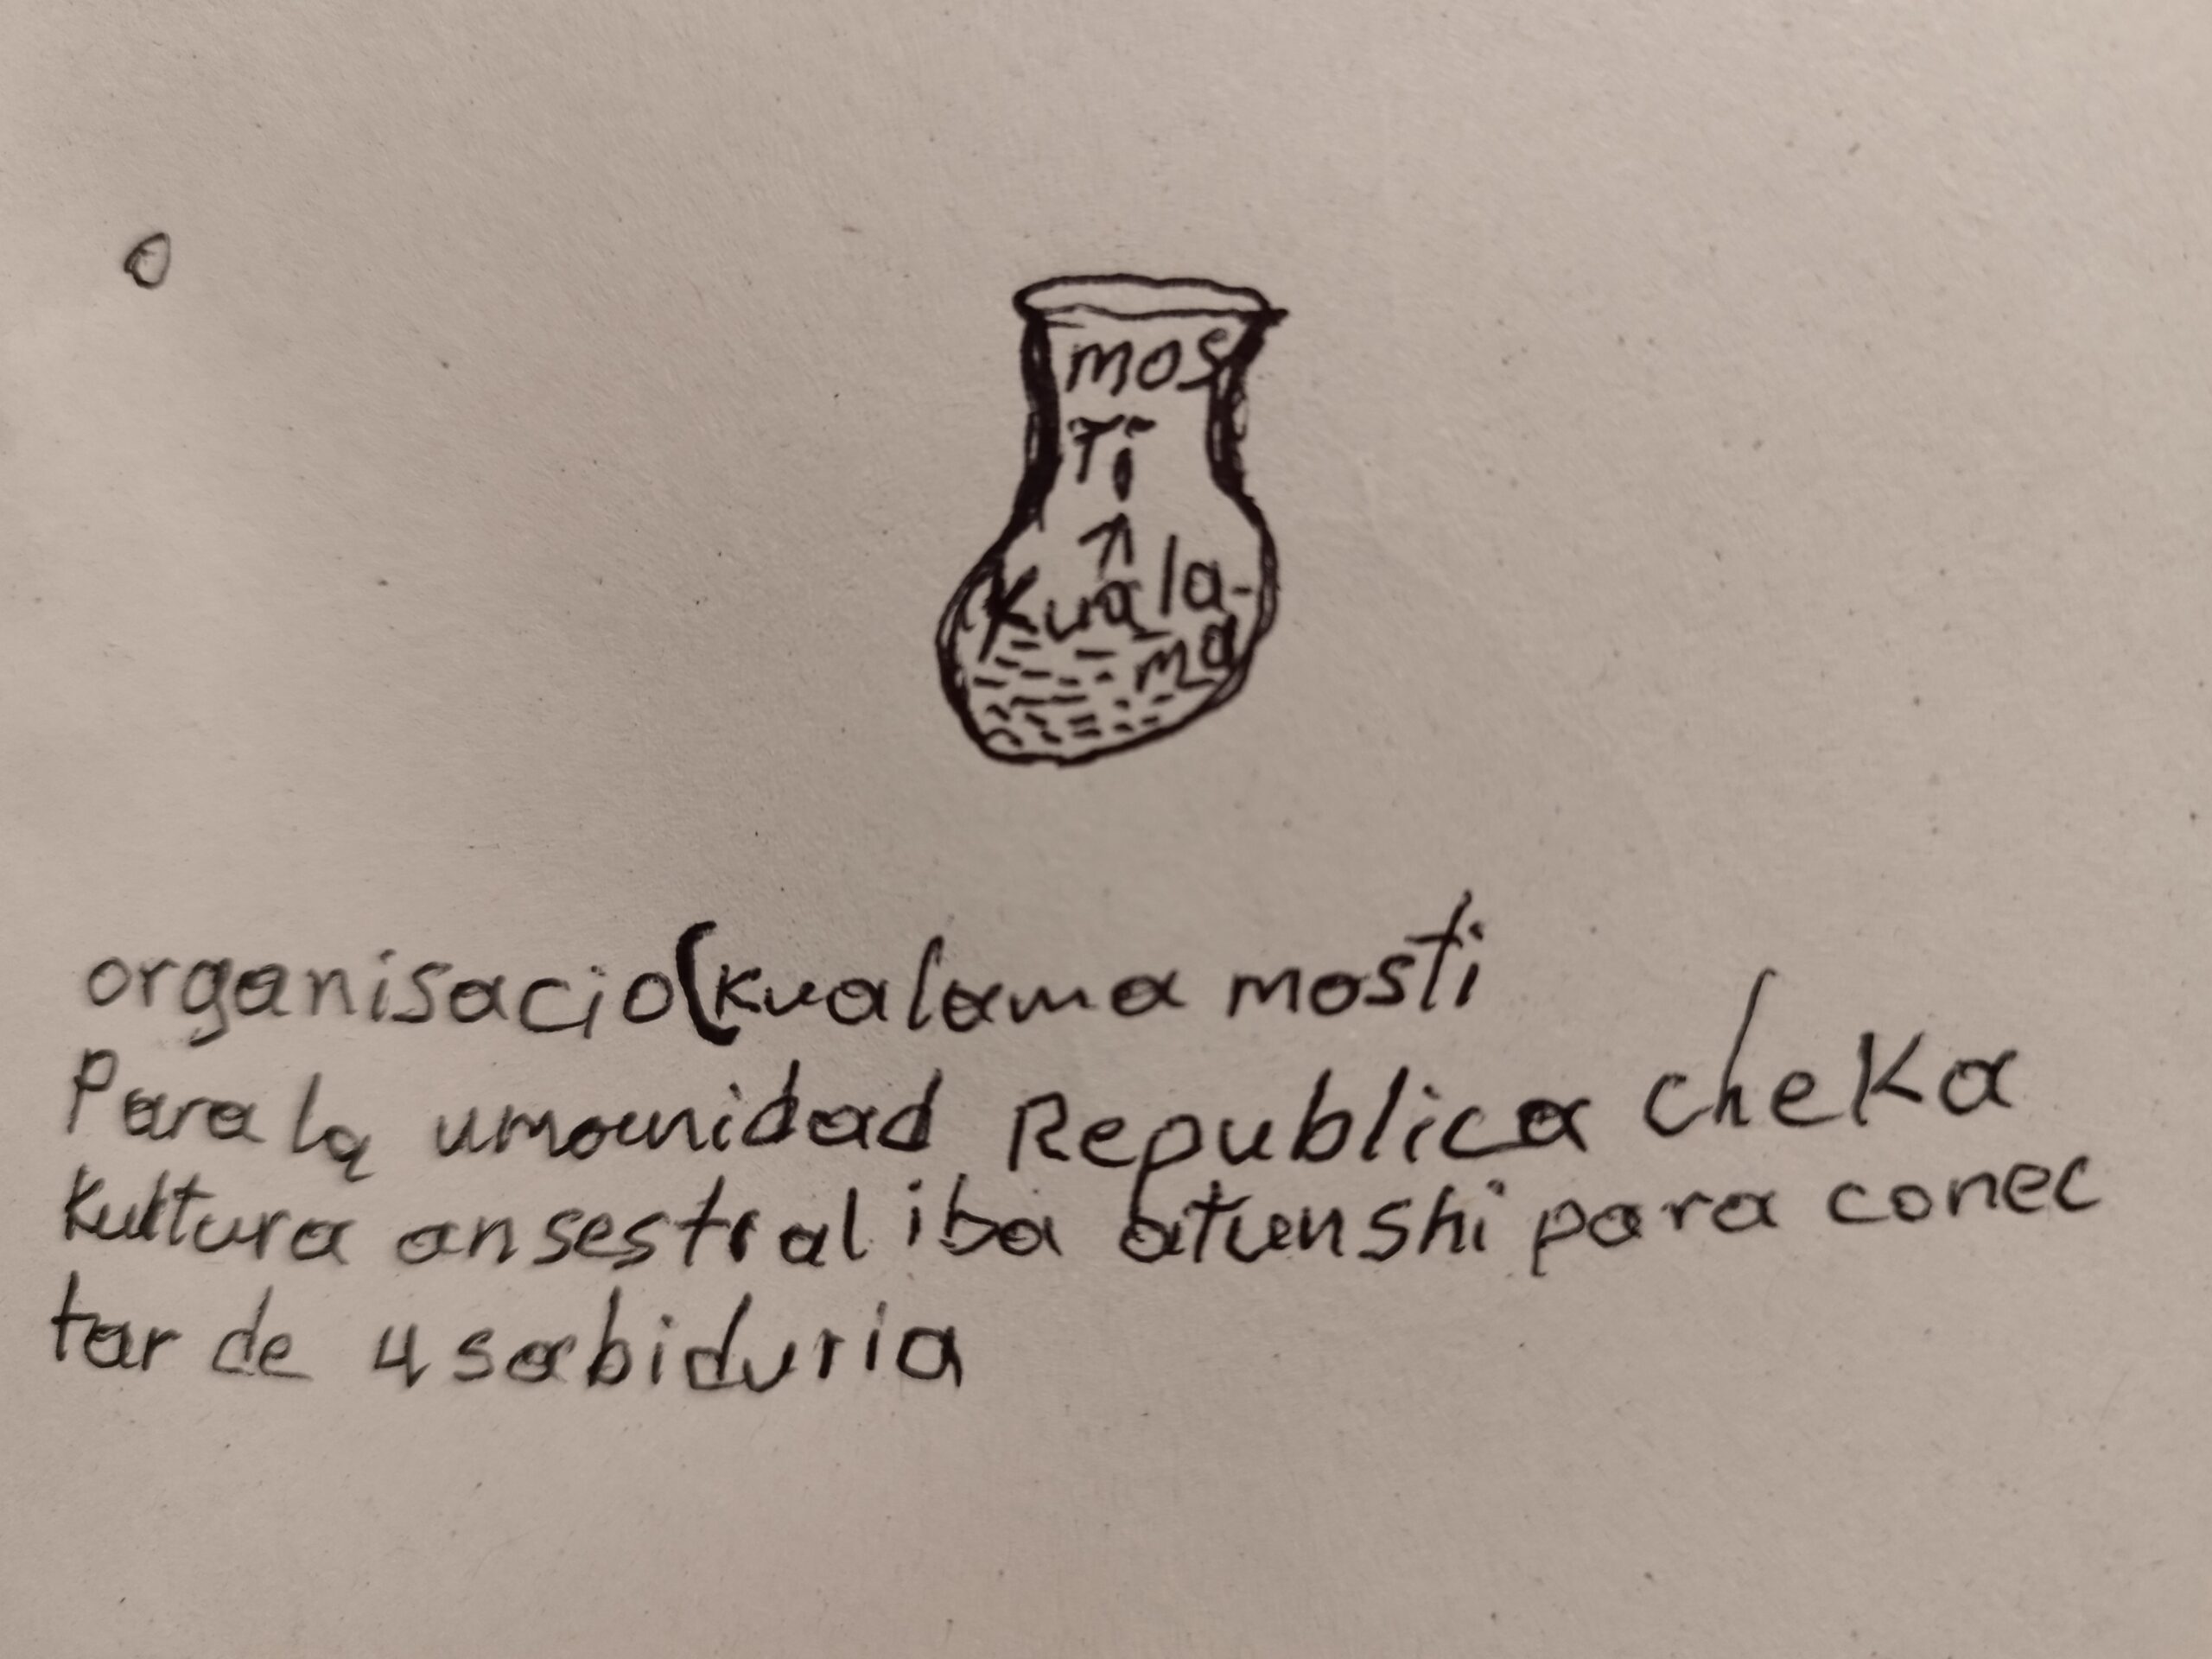 mos
Ti
Kuala-
ma
organisacio(kualama mosti
Para la umanidad Republica cheka
Kultura ansestral iba atunshi para conec
tar de 4 sabiduria